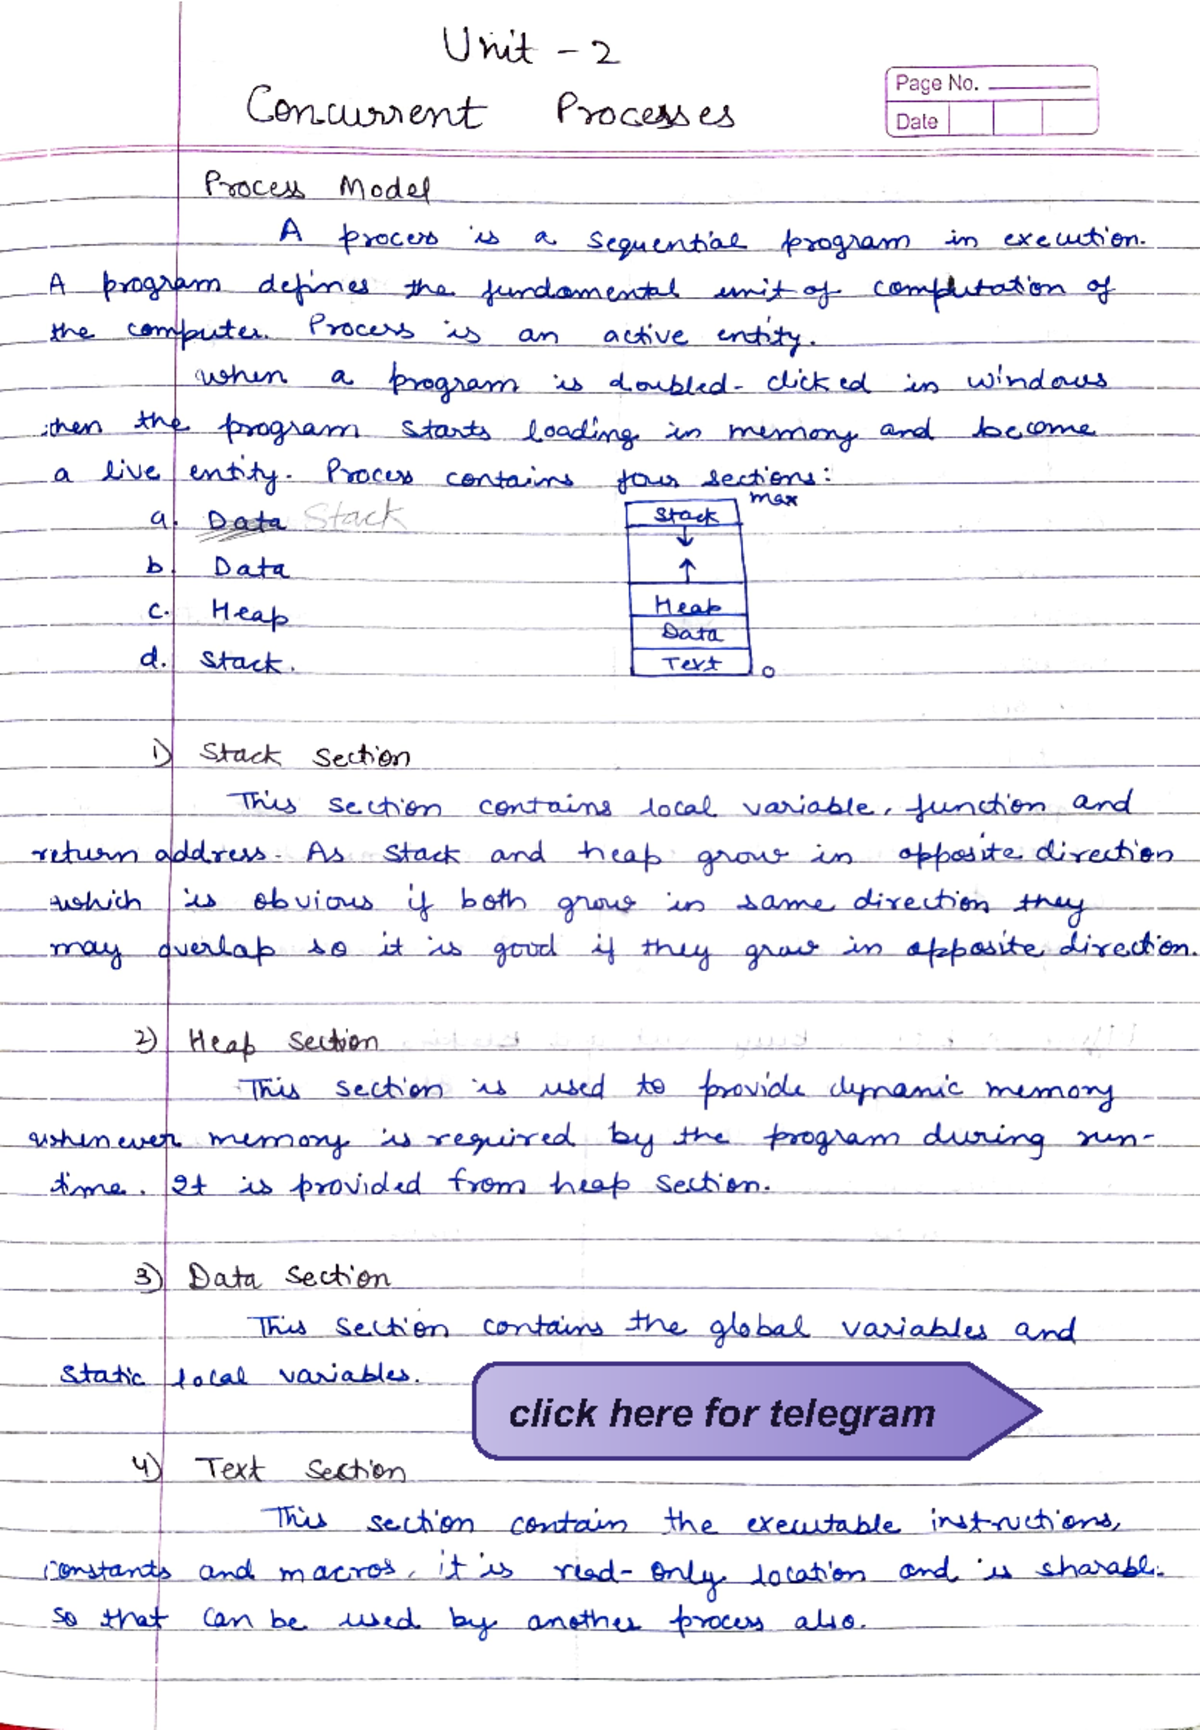 Unit - 2
Concurrent Processes
Page No.
Date
Process Model
A process is a sequential program in execution.
A program defines the fundamental unit of computation of
the computer. Process is an active entity.
when a program is doubled-clicked in windows
then the program starts loading in memory and become
a live entity. Process contains four sections:
a. Data Stack
b. Data
c. Heap
d. Stack.
max
Stack
↓
↑
Heap
Data
Text
0
1) Stack Section
This section contains local variable, function and
return address. As Stack and heap grow in opposite direction
which is obvious if both grow in same direction they
may overlap so it is good if they grow in opposite direction.
2) Heap Section
This section is used to provide dynamic memory
whenever memory is required by the program during run-
time. It is provided from heap section.
3) Data Section
This section contains the global variables and
static local variables.
click here for telegram
4) Text Section
This section contain the executable instructions,
constants and macros, it is read-only location and is sharable
so that can be used by another process also.